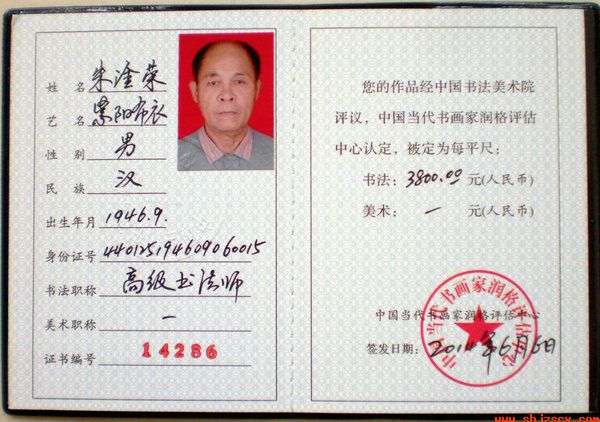 姓 名 朱淦荣
艺 名 紫阳布衣
性 别 男
民 族 汉
出生年月 1946.9.
身份证号 440125194609060015
书法职称 高级书法师
美术职称 一
证书编号 14286
您的作品经中国书法美术院
评议，中国当代书画家润格评估
中心认定，被定为每平尺：
书法：3800.00 元(人民币)
美术： 一 元(人民币)
中国当代书画家润格评估中心
中国当代书画家润格评估中心
签发日期：2014年6月6日
www.shjzscx.com